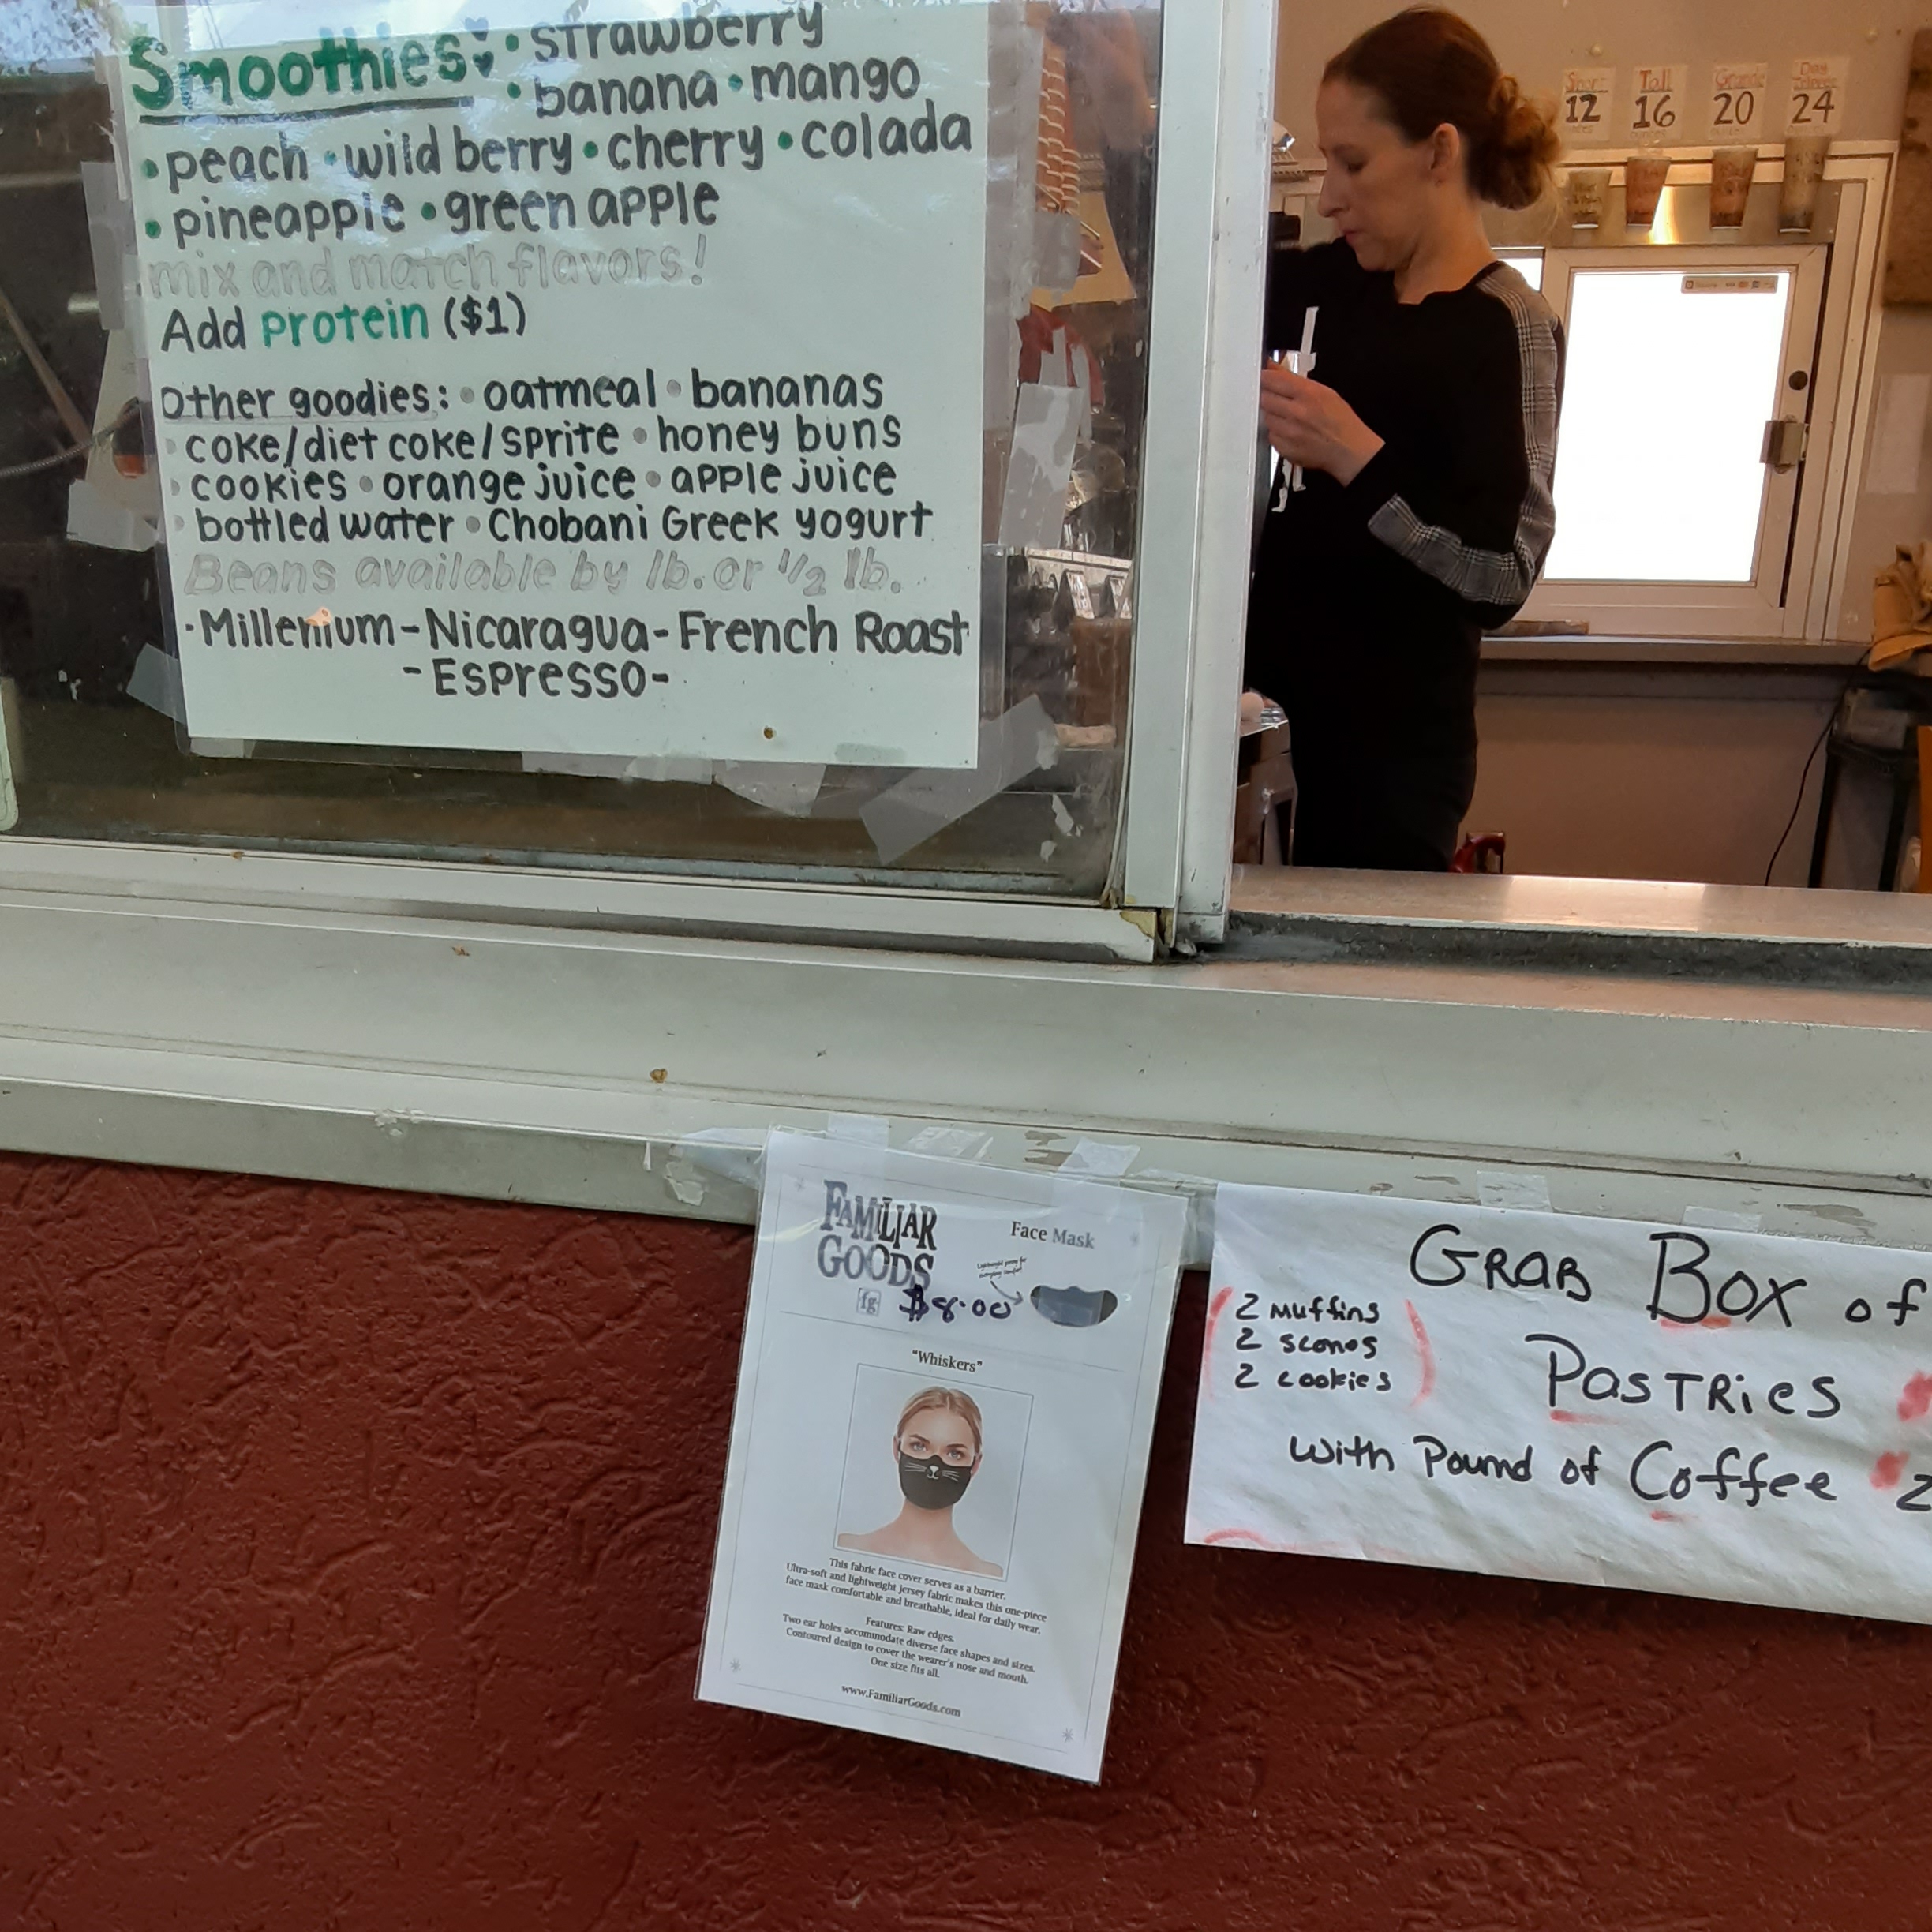 Smoothies • strawberry
• banana • mango
• peach • wild berry • cherry • colada
• pineapple • green apple
mix and match flavors!
Add protein ($1)
Other goodies: • oatmeal • bananas
• coke/diet coke/sprite • honey buns
• cookies • orange juice • apple juice
• bottled water • Chobani Greek yogurt
Beans available by lb. or 1/2 lb.
-Millenium-Nicaragua-French Roast
-Espresso-
Short Tall Grande
12 16 20 24
FAMILIAR
GOODS
fg $8.00
Face Mask
Lightweight jersey for
everyday comfort
"Whiskers"
This fabric face cover serves as a barrier.
Ultra-soft and lightweight jersey fabric makes this one-piece
face mask comfortable and breathable, ideal for daily wear.
Features: Raw edges.
Two ear holes accommodate diverse face shapes and sizes.
Contoured design to cover the wearer's nose and mouth.
One size fits all.
www.FamiliarGoods.com
GRAB BOX of
2 muffins
2 scones
2 cookies
PASTRIES
with Pound of Coffee